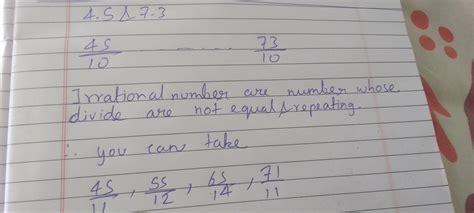 4.5 & 7.3
45/10 - - - - . 73/10
Irrational number are number whose
divide are not equal & repeating.
∴ you can take
45/11 , 55/12 , 65/14 , 71/11